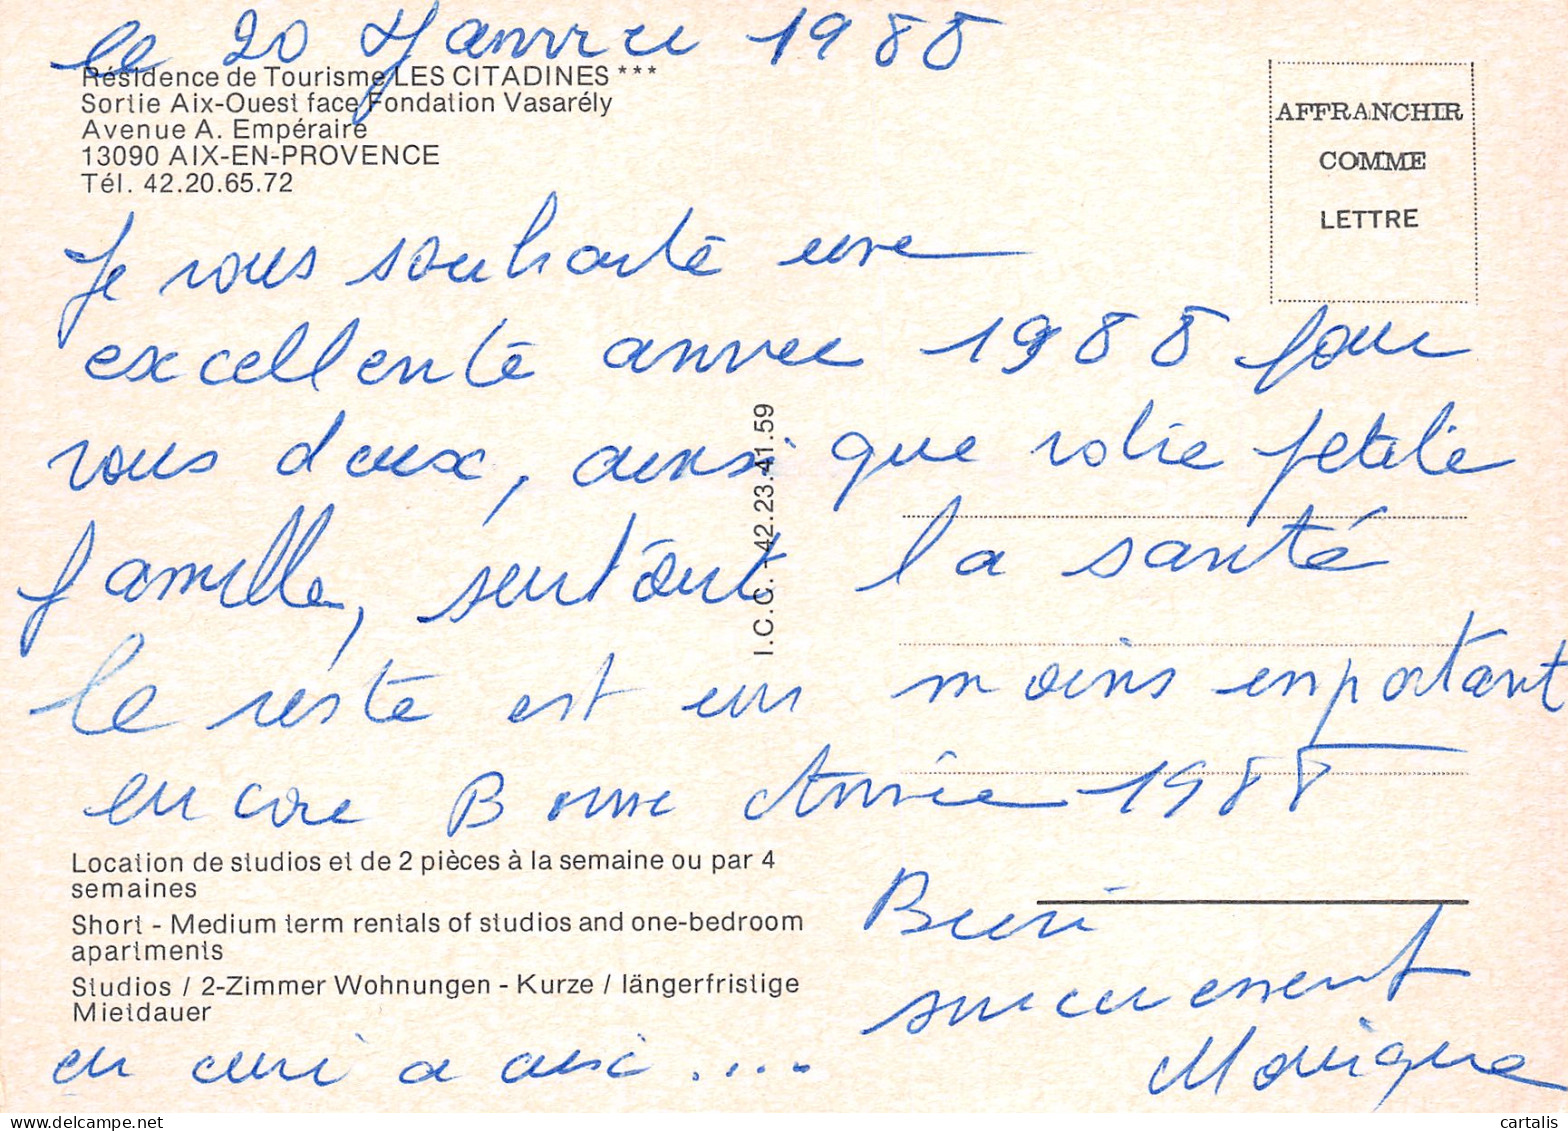 le 20 Janvier 1988
Résidence de Tourisme LES CITADINES ***
Sortie Aix-Ouest face Fondation Vasarély
Avenue A. Empéraire
13090 AIX-EN-PROVENCE
Tél. 42.20.65.72
AFFRANCHIR
COMME
LETTRE
Je vous souhaite une
excellente année 1988 pour
vous deux, ainsi que votre petite
famille, surtout la santé
le reste est un moins important
encore Bonne Année 1988
I.C.C. - 42.23.41.59
Location de studios et de 2 pièces à la semaine ou par 4
semaines
Short - Medium term rentals of studios and one-bedroom
apartments
Studios / 2-Zimmer Wohnungen - Kurze / längerfristige
Mietdauer
Bien
sincèrement
Monique
a ....
cartalis